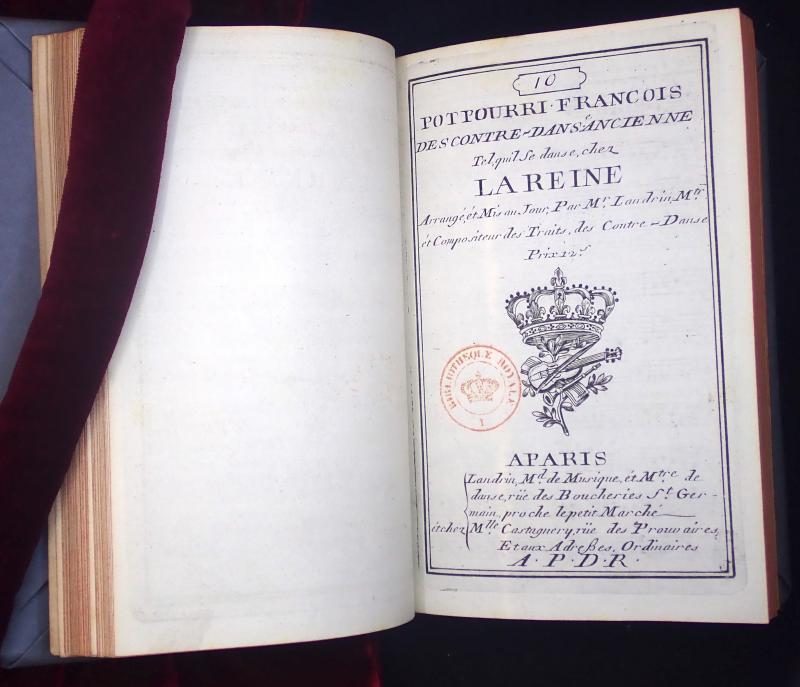 10
POTPOURRI·FRANCOIS
DES CONTRE-DANSE ANCIENNE
Tel, qu'il Se danse, chez
LA REINE
Arrangé, ét Mis au Jour, Par Mr. Landrin, Mtr.
ét Compositeur des Traits, des Contre-Danse
Prix 12.s
BIBLIOTHEQUE ROYALE
I
A PARIS
Landrin, Md. de Musique, ét Mtre de
danse, rüe des Boucheries St. Ger-
main, proche le petit Marché
ét chez Mlle Castagnery, rüe des Prouvaires,
Et aux Adreßes, Ordinaires
A·P·D·R·